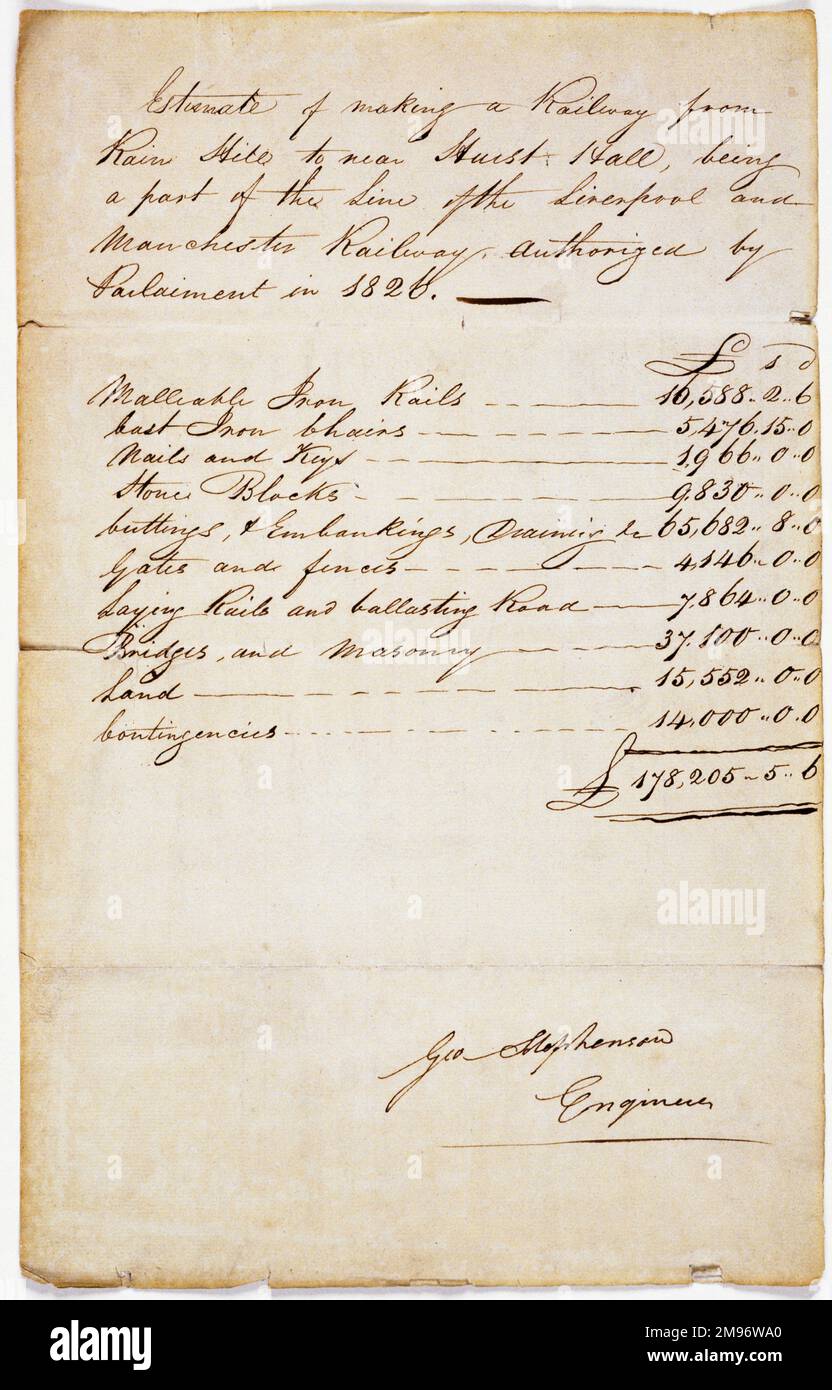 Estimate of making a Railway from
Rain Hill to near Hurst Hall, being
a part of the Line of the Liverpool and
Manchester Railway. authorized by
Parlaiment in 1826.
£ s d
Malleable Iron Rails 16,588..2..6
Cast Iron Chairs 5,476.15..0
Nails and Keys 1,966..0..0
Stone Blocks 9,830..0..0
Cuttings, & Embankings, Draining &c 65,682..8..0
Gates and fences 4,146..0..0
Laying Rails and ballasting Road 7,864..0..0
Bridges, and Masonry 37,100..0..0
Land 15,552..0..0
Contingencies 14,000..0.0
£ 178,205..5..6
Geo Stephenson
Engineer
alamy
Image ID: 2M96WA0
www.alamy.com